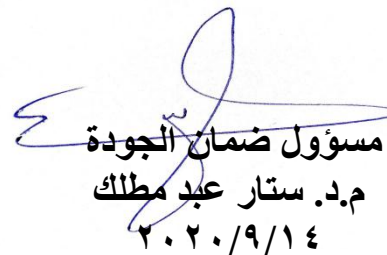 مسؤول ضمان الجودة
م.د. ستار عبد مطلك
٢٠٢٠/٩/١٤